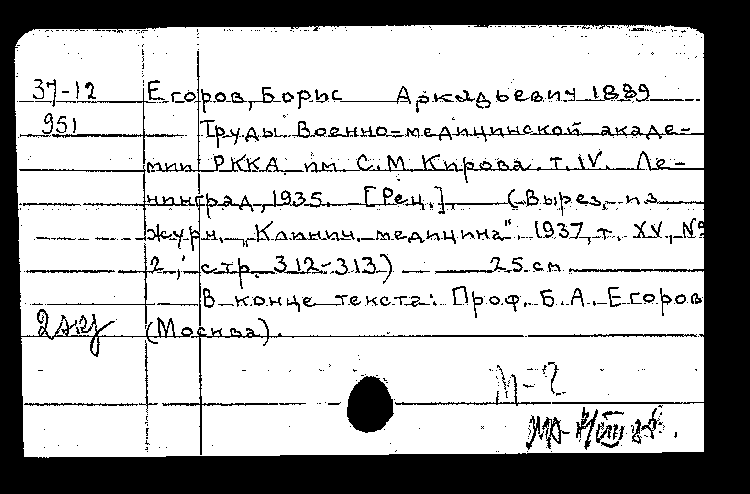 37-12 Егоров, Борис Аркадьевич 1889
951 Труды Военно-медицинской акаде-
мии РККА им. С.М. Кирова. т. IV. Ле-
нинград, 1935. [Рец.]. (Вырез. из
журн. „Клинич. медицина". 1937, т. XV, №
2, стр. 312-313) 25 см.
В конце текста: Проф. Б.А. Егоров
2 экз (Москва).
М-2